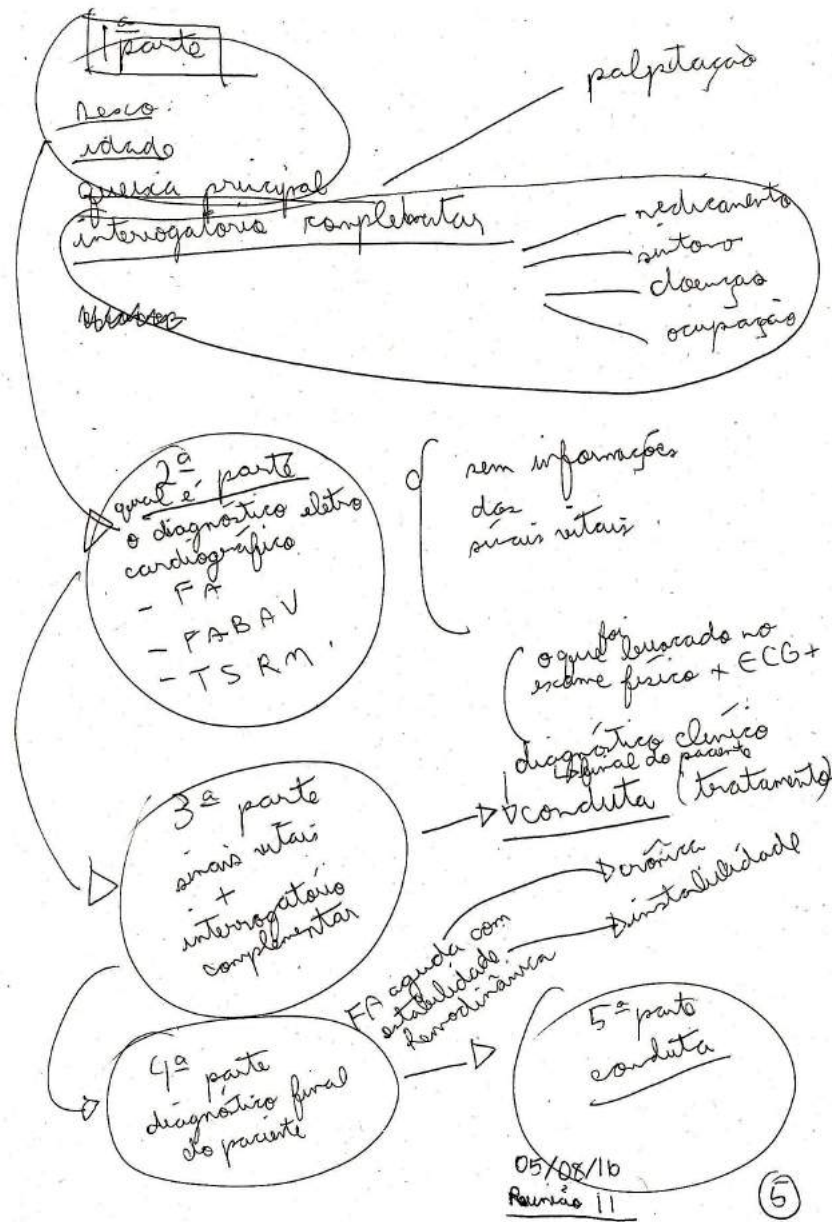 1ª parte
sexo
idade
queixa principal
interrogatório complementar
palpitação
medicamento
sintoma
doenças
ocupação
2ª parte
qual é
o diagnóstico eletro
cardiográfico
- FA
- FABAV
- TSRM.
sem informações
dos
sinais vitais.
o que foi buscado no
exame físico + ECG +
diagnóstico clínico
final do paciente
conduta (tratamento)
3ª parte
sinais vitais
+
interrogatório
complementar
crônica
instabilidade
FA aguda com
estabilidade
hemodinâmica
4ª parte
diagnóstico final
do paciente
5ª parte
conduta
05/08/16
Reunião 11
5